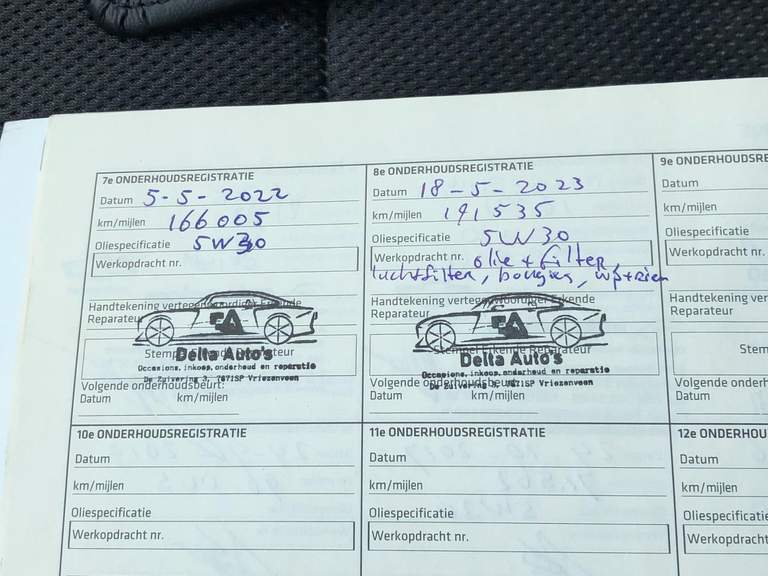 7e ONDERHOUDSREGISTRATIE
Datum 5-5-2022
km/mijlen 166005
Oliespecificatie 5W30
Werkopdracht nr.
Handtekening vertegenwoordiger Erkende
Reparateur
EA
Stempel Erkende Reparateur
Delta Auto's
Occasions, inkoop, onderhoud en reparatie
De Zuivering 3, 7671SP Vriezenveen
Volgende onderhoudsbeurt:
Datum km/mijlen
8e ONDERHOUDSREGISTRATIE
Datum 18-5-2023
km/mijlen 191535
Oliespecificatie 5W30
Werkopdracht nr. olie + filter,
luchtfilter, bougies,
Handtekening vertegenwoordiger Erkende
Reparateur
Stempel Erkende Reparateur
Delta Auto's
Occasions, inkoop, onderhoud en reparatie
De Zuivering 3, 7671SP Vriezenveen
Volgende onderhoudsbeurt:
Datum km/mijlen
9e ONDERHOUDSRE
Datum
km/mijlen
Oliespecificatie
Werkopdracht nr.
Handtekening ver
Reparateur
Stem
Volgende onderh
Datum
10e ONDERHOUDSREGISTRATIE
Datum
km/mijlen
Oliespecificatie
Werkopdracht nr.
11e ONDERHOUDSREGISTRATIE
Datum
km/mijlen
Oliespecificatie
Werkopdracht nr.
12e ONDERHOU
Datum
km/mijlen
Oliespecificatie
Werkopdracht